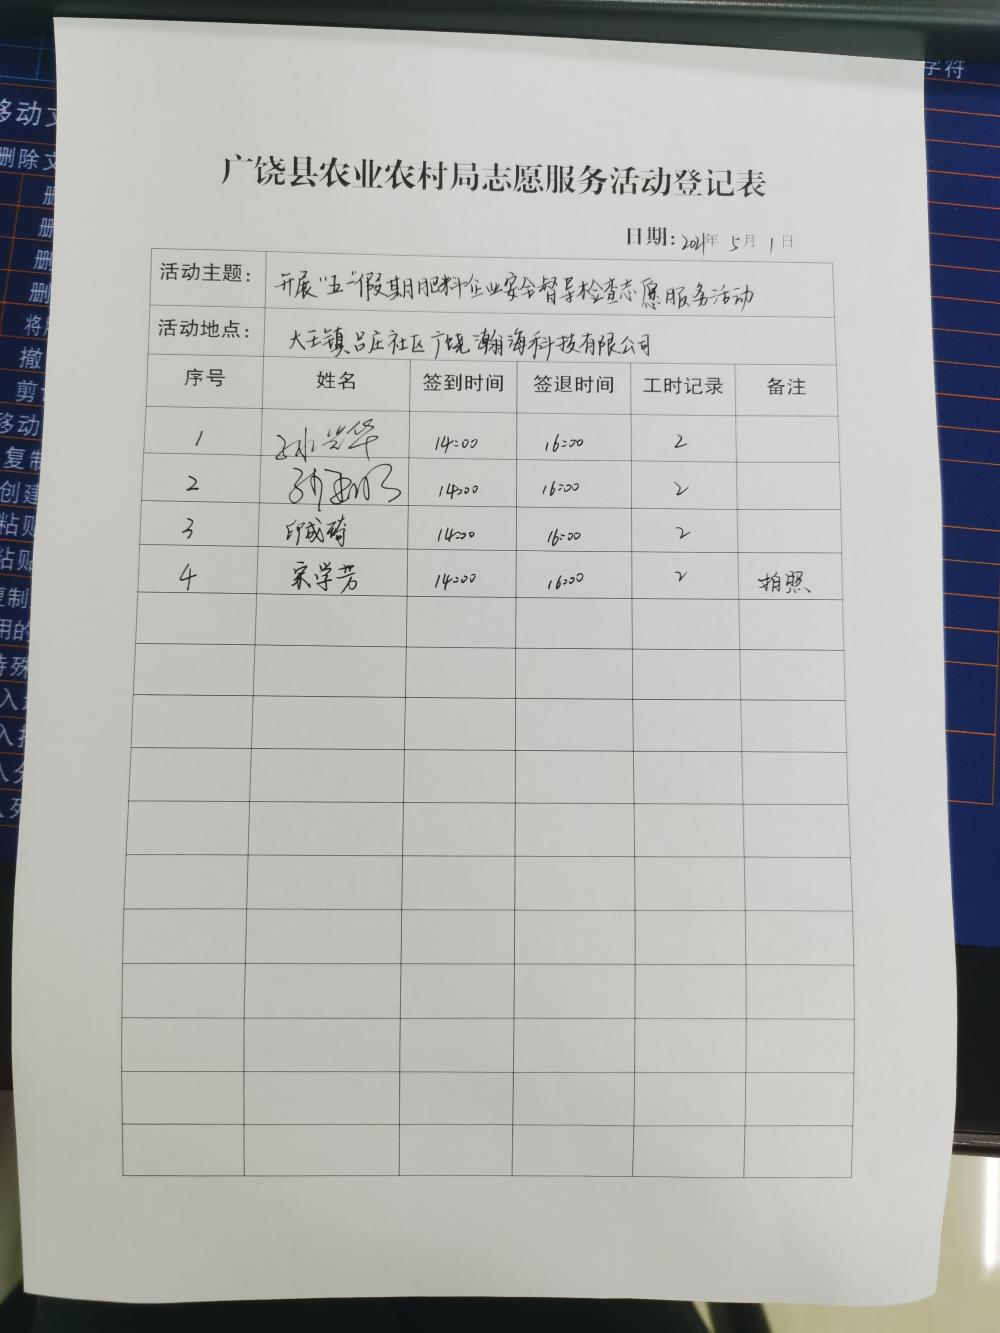 广饶县农业农村局志愿服务活动登记表
日期: 2021年 5月 1日
活动主题: 开展"五一"假期肥料企业安全督导检查志愿服务活动
活动地点: 大王镇吕庄社区广饶瀚海科技有限公司
序号 姓名 签到时间 签退时间 工时记录 备注
1 孙兴华 14:00 16:00 2
2 14:00 16:00 2
3 印成琦 14:00 16:00 2
4 宋学芳 14:00 16:00 2 拍照
字符
移动文
删除文
删
删
删
删
撤
移动
复制
创建
粘贴
粘贴
复制
用的
特殊
入
入